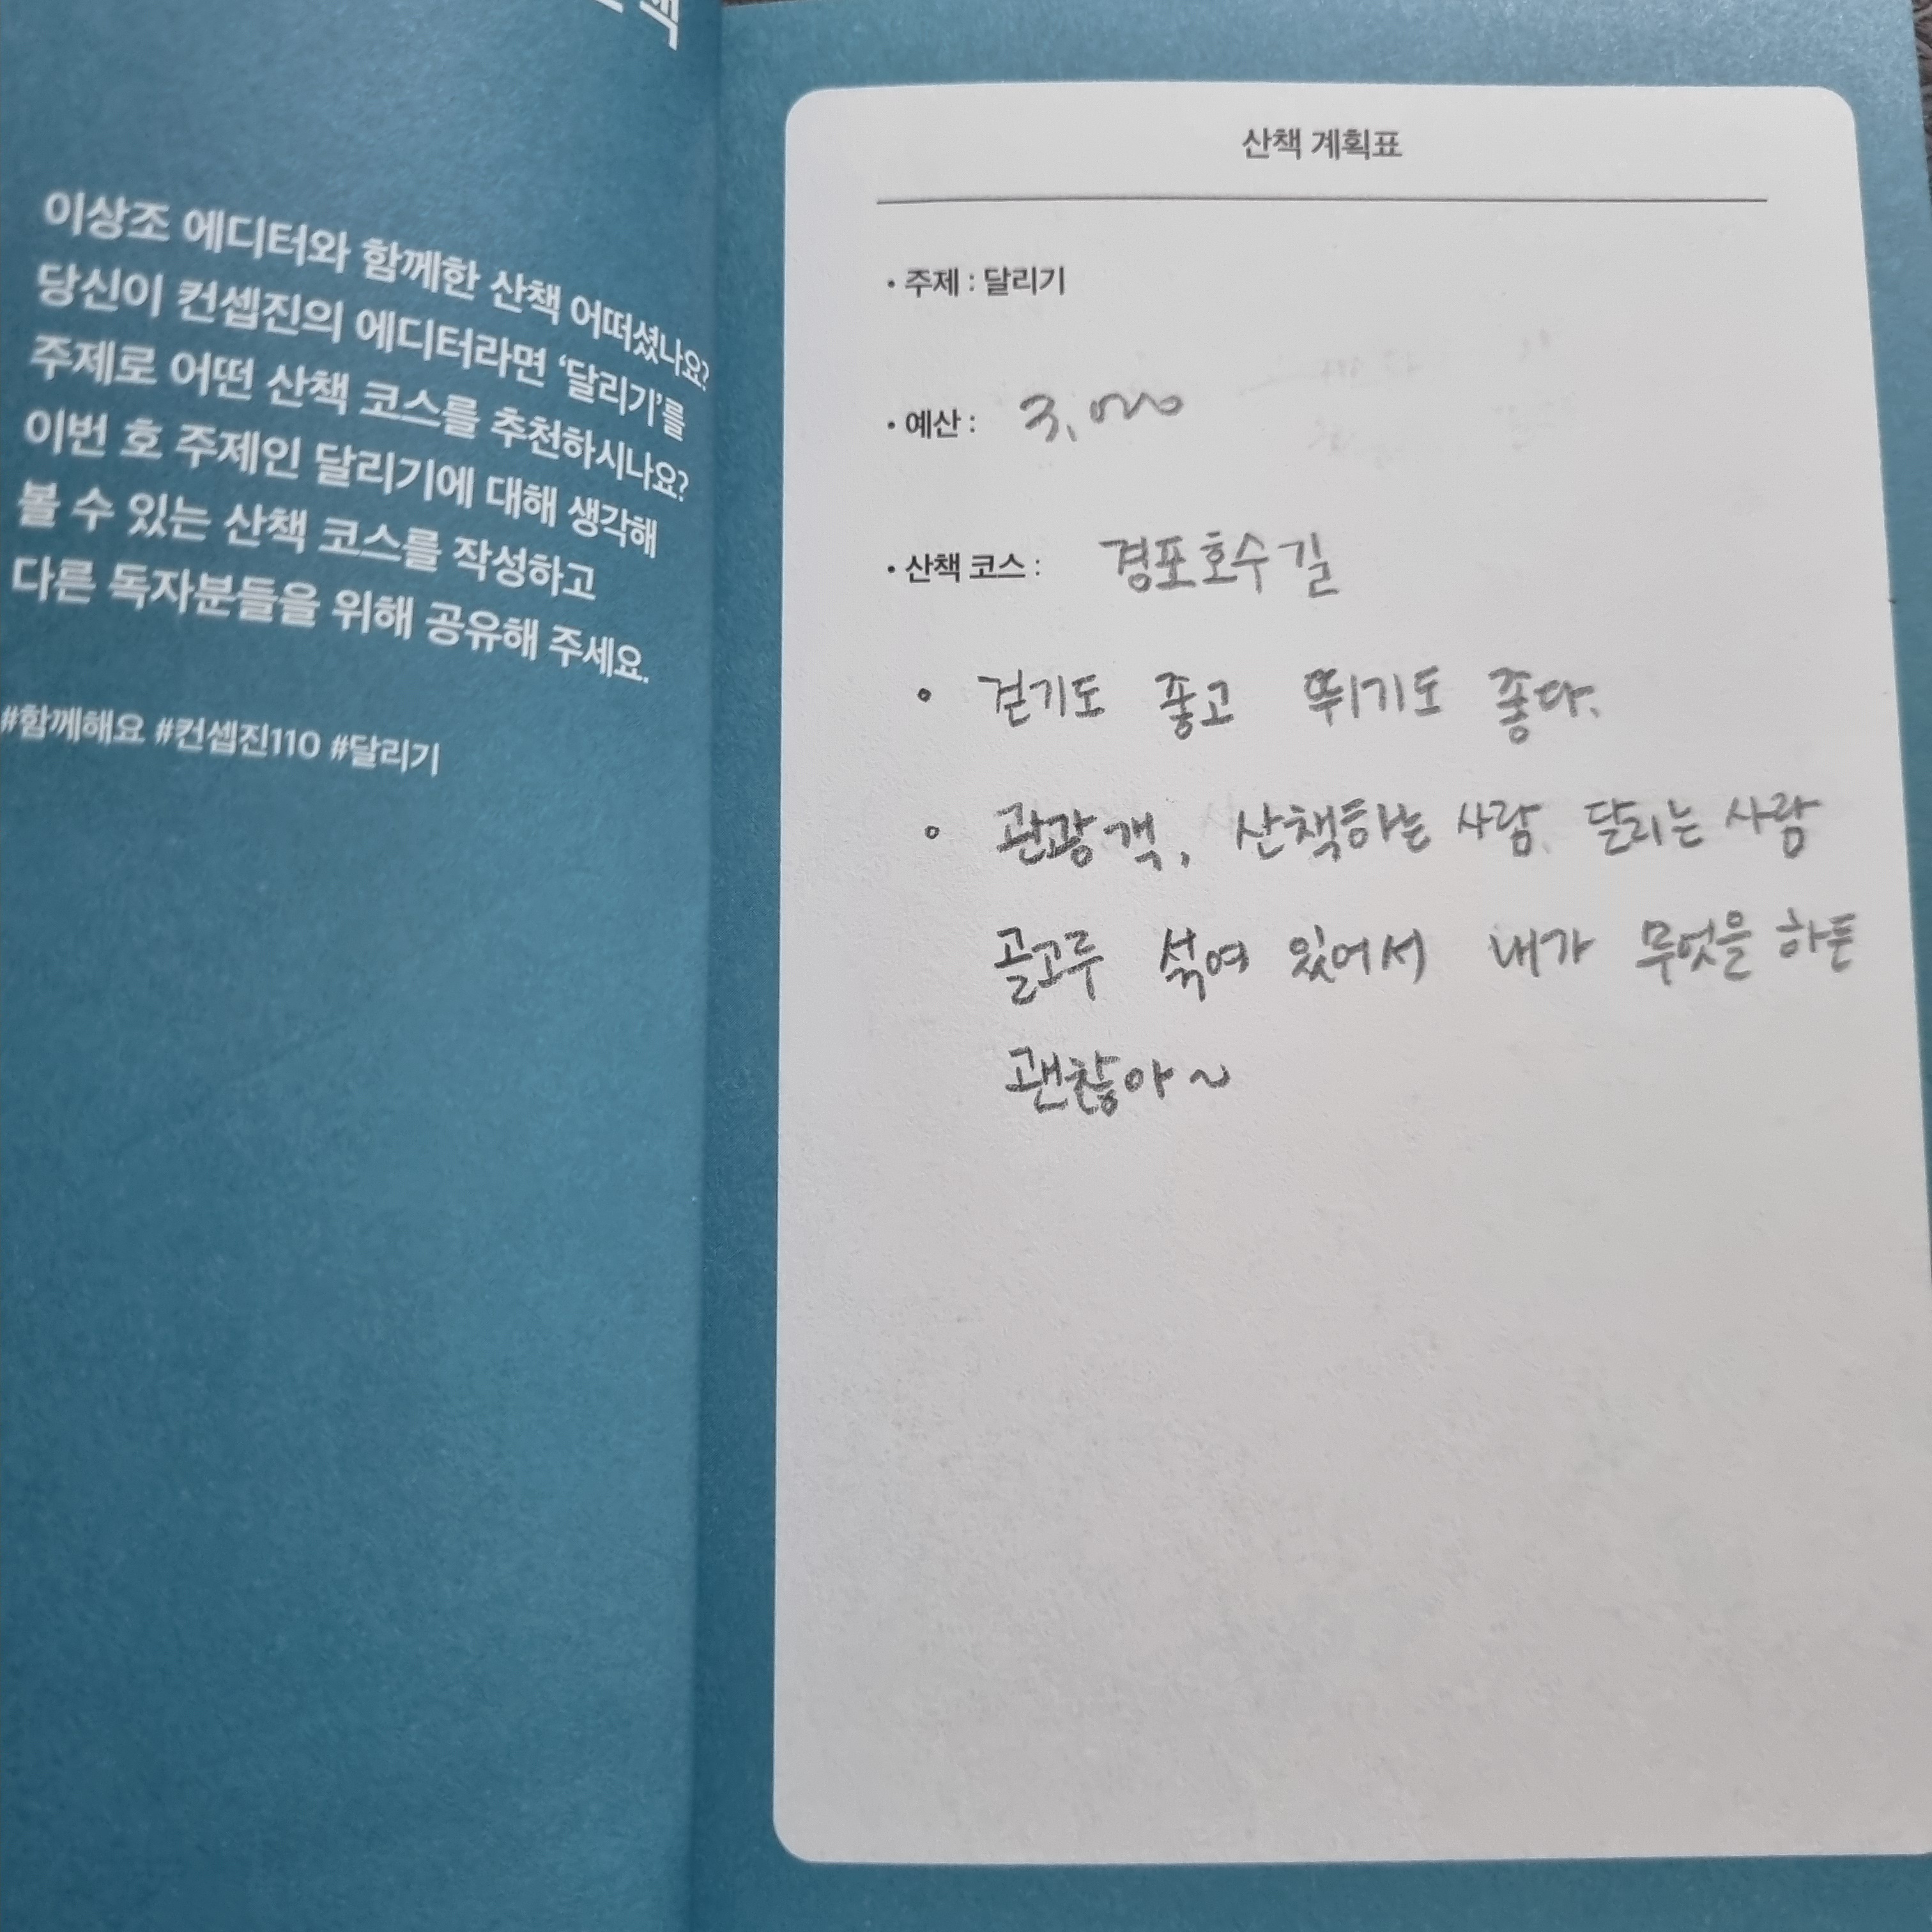 이상조 에디터와 함께한 산책 어떠셨나요?
당신이 컨셉진의 에디터라면 '달리기'를
주제로 어떤 산책 코스를 추천하시나요?
이번 호 주제인 달리기에 대해 생각해
볼 수 있는 산책 코스를 작성하고
다른 독자분들을 위해 공유해 주세요.
#함께해요 #컨셉진110 #달리기
산책 계획표
• 주제 : 달리기
• 예산 : 3,000
• 산책 코스 : 경포호수길
• 걷기도 좋고 뛰기도 좋다.
• 관광객, 산책하는 사람, 달리는 사람
골고루 섞여 있어서 내가 무엇을 하든
괜찮아~